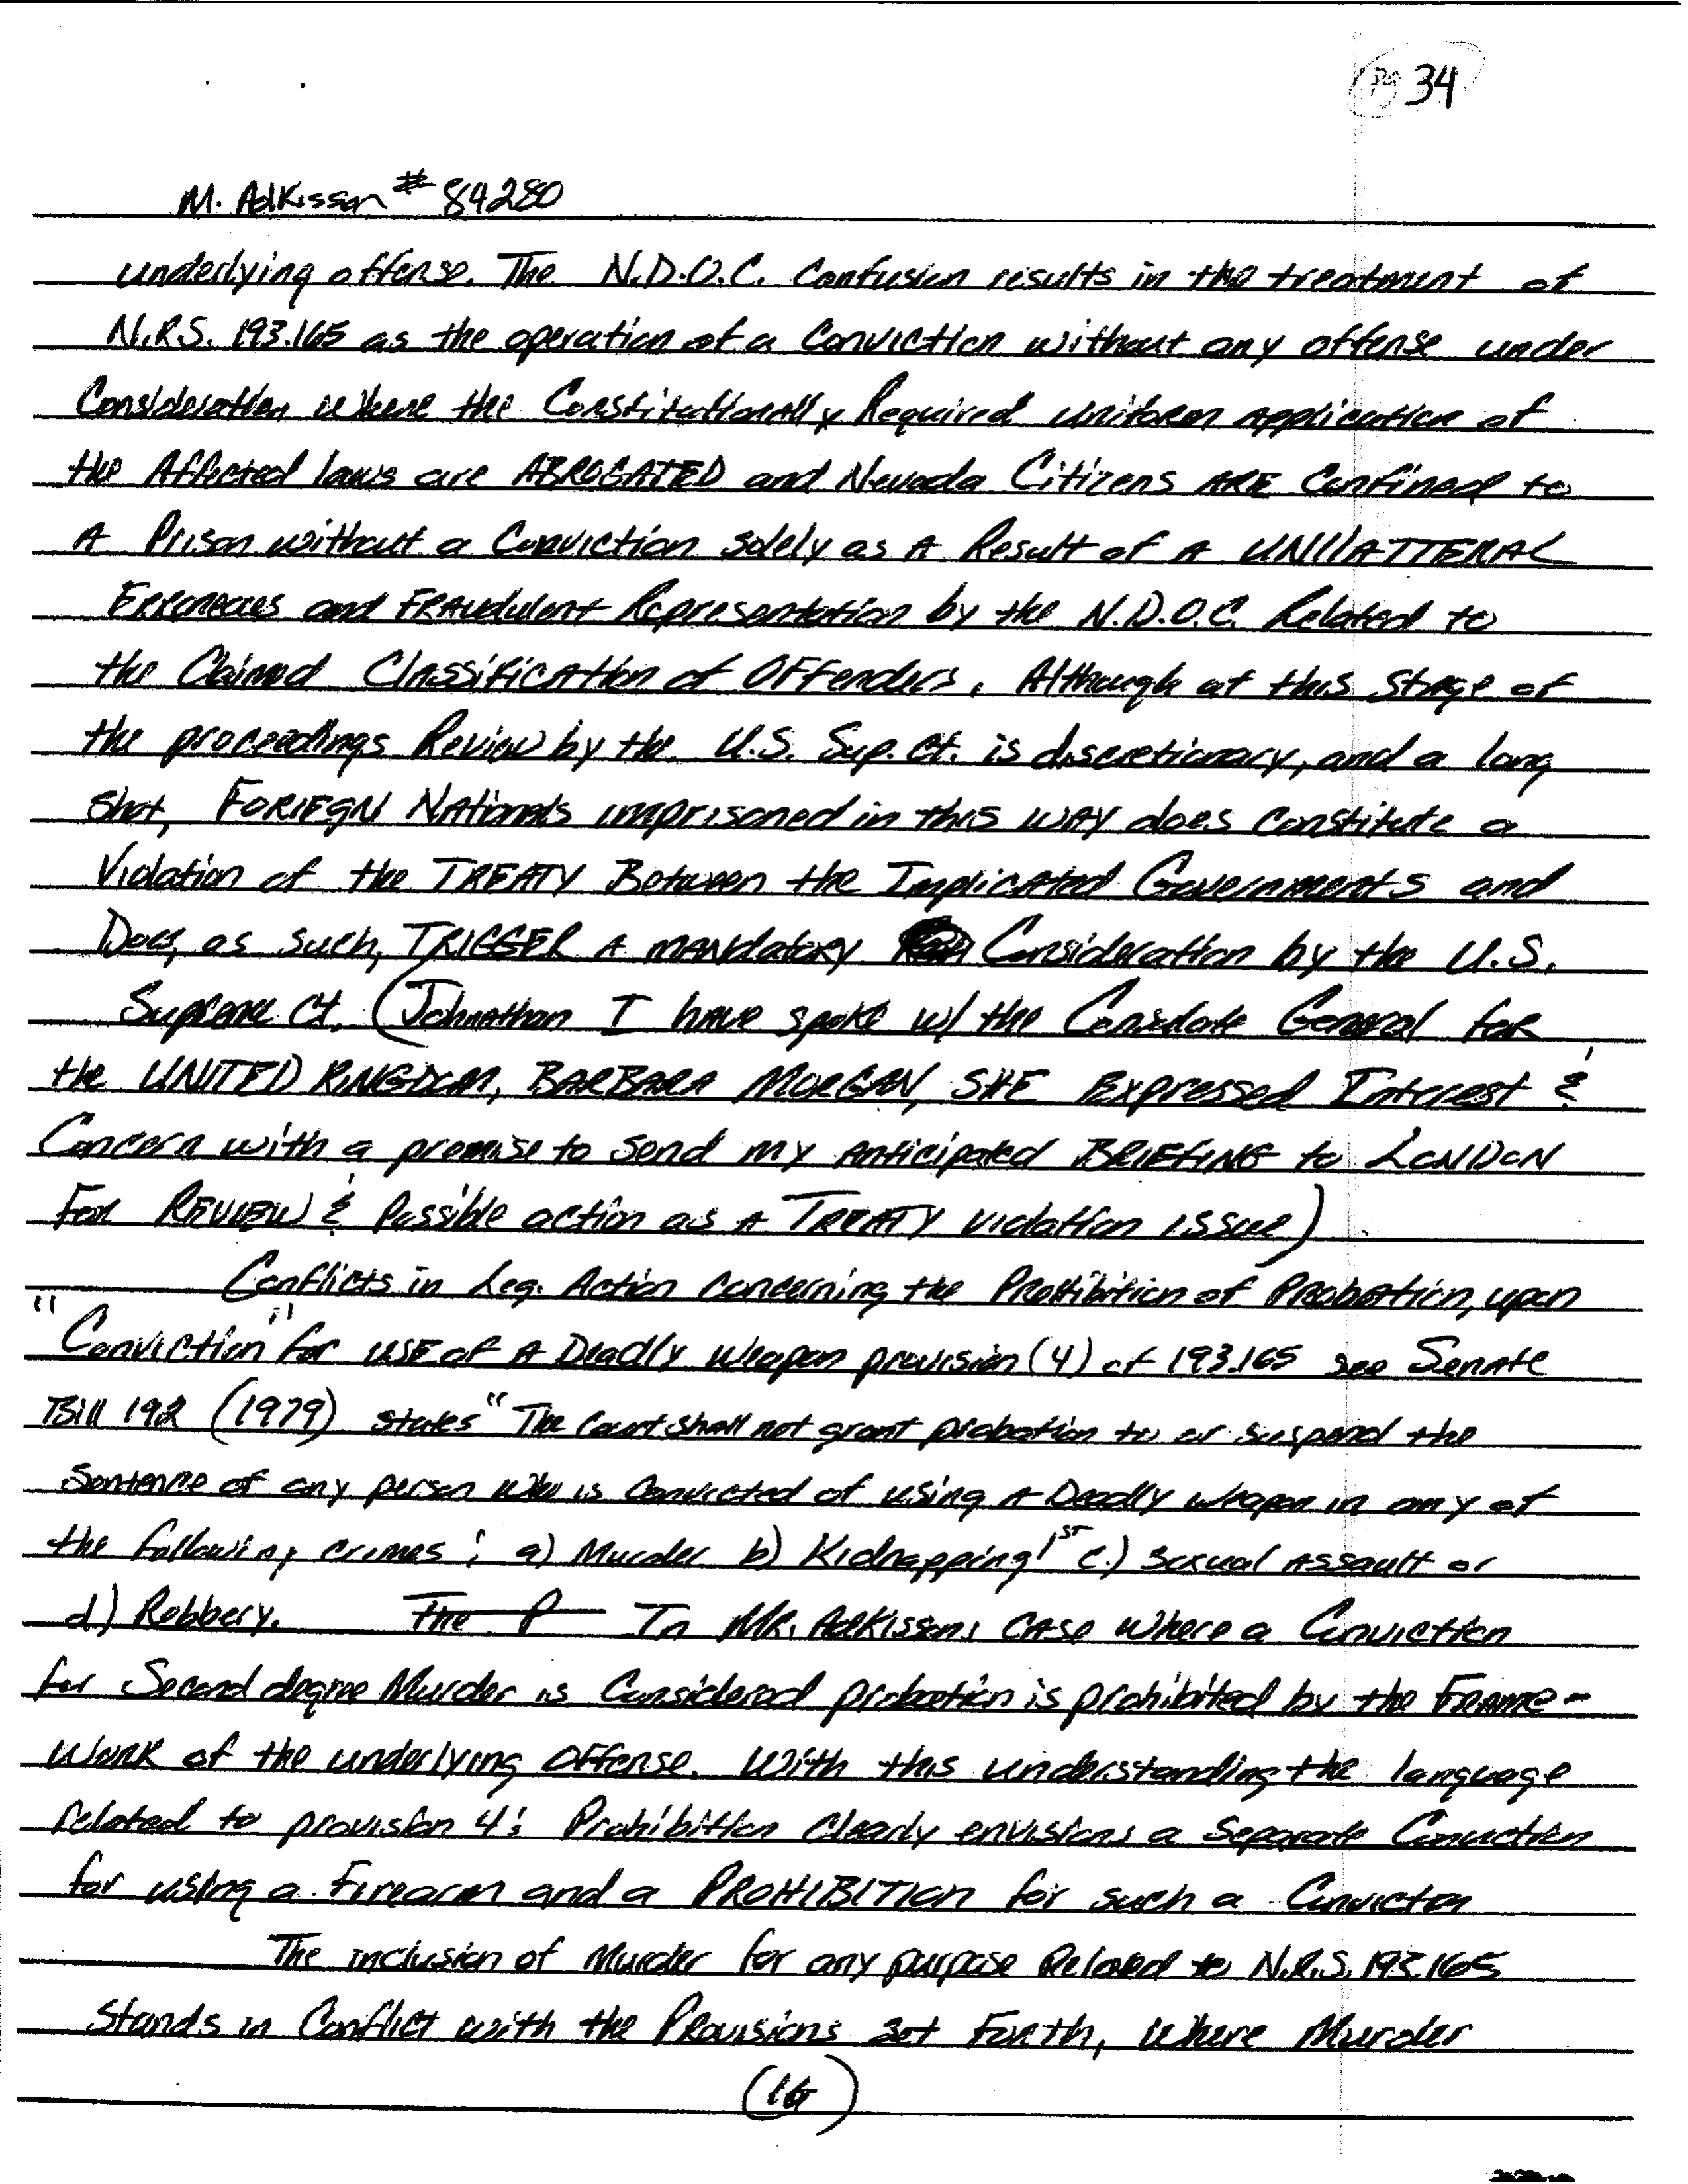 Pg 34
M. Adkisson # 84280
underlying offense. The N.D.O.C. Confusion results in the treatment of
N.R.S. 193.165 as the operation of a Conviction without any offense under
Consideration where the Constitutionally Required uniform application of
the Affected laws are ABROGATED and Nevada Citizens ARE Confined to
A Prison without a Conviction solely as A Result of A UNILATTERAL
Erroneous and FRAUdulent Representation by the N.D.O.C. Related to
the Claimed Classification of OFFenders. Although at this stage of
the proceedings Review by the U.S. Sup. Ct. is discretionary, and a long
shot, FORIEGN NAtionals imprisoned in this WAY does Constitute a
Violation of the TREATY Between the Implicated Governments and
Does, as such, TRIGGER A MANdatory Consideration by the U.S.
Supreme Ct. (Johnathan I have spoke w/ the Consulate General for
the UNITED KINGDOM, BARBARA MORGAN, SHE Expressed Interest &
Concern with a promise to send my Anticipated BRIEFING to LONDON
For REVIEW & Possible action as A TREATY violation issue)
Conflicts in Leg. Action Concerning the Prohibition of Probation, upon
"Conviction" for USE of A Deadly Weapon provision (4) of 193.165 see Senate
Bill 192 (1979) states "The Court shall not grant probation to or suspend the
Sentence of any person who is Convicted of using A Deadly weapon in any of
the following crimes; a) Murder b) Kidnapping 1st c.) Sexual Assault or
d) Robbery. The P In MR. Adkissons CASE where a Conviction
for Second degree Murder is Considered probation is prohibited by the FRAME-
Work of the underlying Offense. With this understanding the language
related to provision 4's Prohibition Clearly envisions a Separate Conviction
for using a Firearm and a PROHIBITION for such a Convicton
The inclusion of Murder for any purpose Related to N.R.S. 193.165
Stands in Conflict with the Provisions set Forth, where Murder
(16)